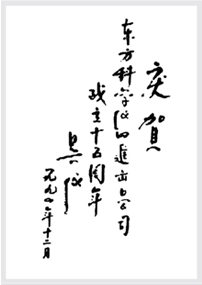 庆贺
东方科学仪器进出口公司
成立十五周年
一九九四年十二月